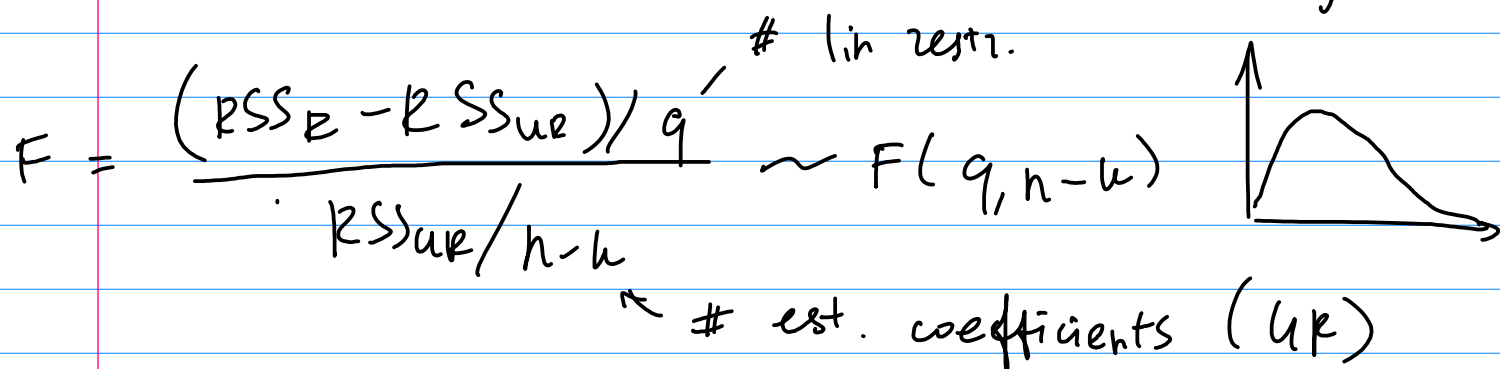 # lin restr.
F = (RSS_R - RSS_UR)/q / RSS_UR/n-k ~ F(q, n-k)
# est. coefficients (UR)